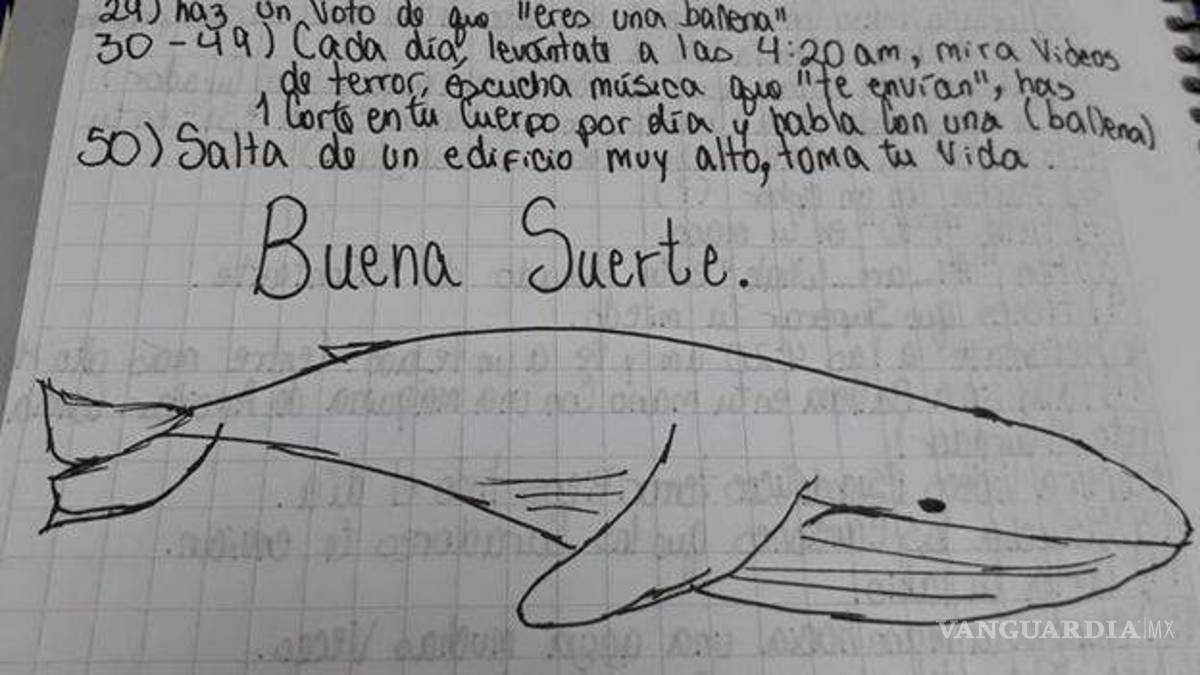 29) haz un voto de que "eres una ballena"
30-49) Cada día, levántate a las 4:20am, mira Videos
de terror, escucha música que "te envían", has
1 Corte en tu Cuerpo por día y habla con una (ballena)
50) Salta de un edificio muy alto, toma tu Vida.
Buena Suerte.
VANGUARDIA|MX